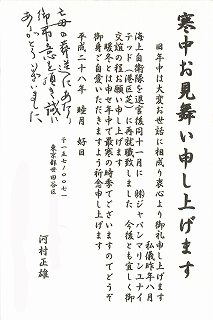 寒中お見舞い申し上げます
旧年中は大変お世話に相成り衷心より御礼申し上げます
私儀昨年八月
海上自衛隊を退官後同十一月に ㈱ジャパンマリンユナイ
テッド(港区芝)に再就職致しました 今後とも宜しく御
交誼の程お願い申し上げます
暖冬とは申せ年中で最寒の時季でございますのでどうぞ
御身ご自愛いただきますよう祈念申し上げます
平成二十八年 睦月 好日
〒一五七-〇〇七一
東京都世田谷区
河村正雄
亡母の葬送にあたり
御厚意を頂き誠に
ありがとうございました